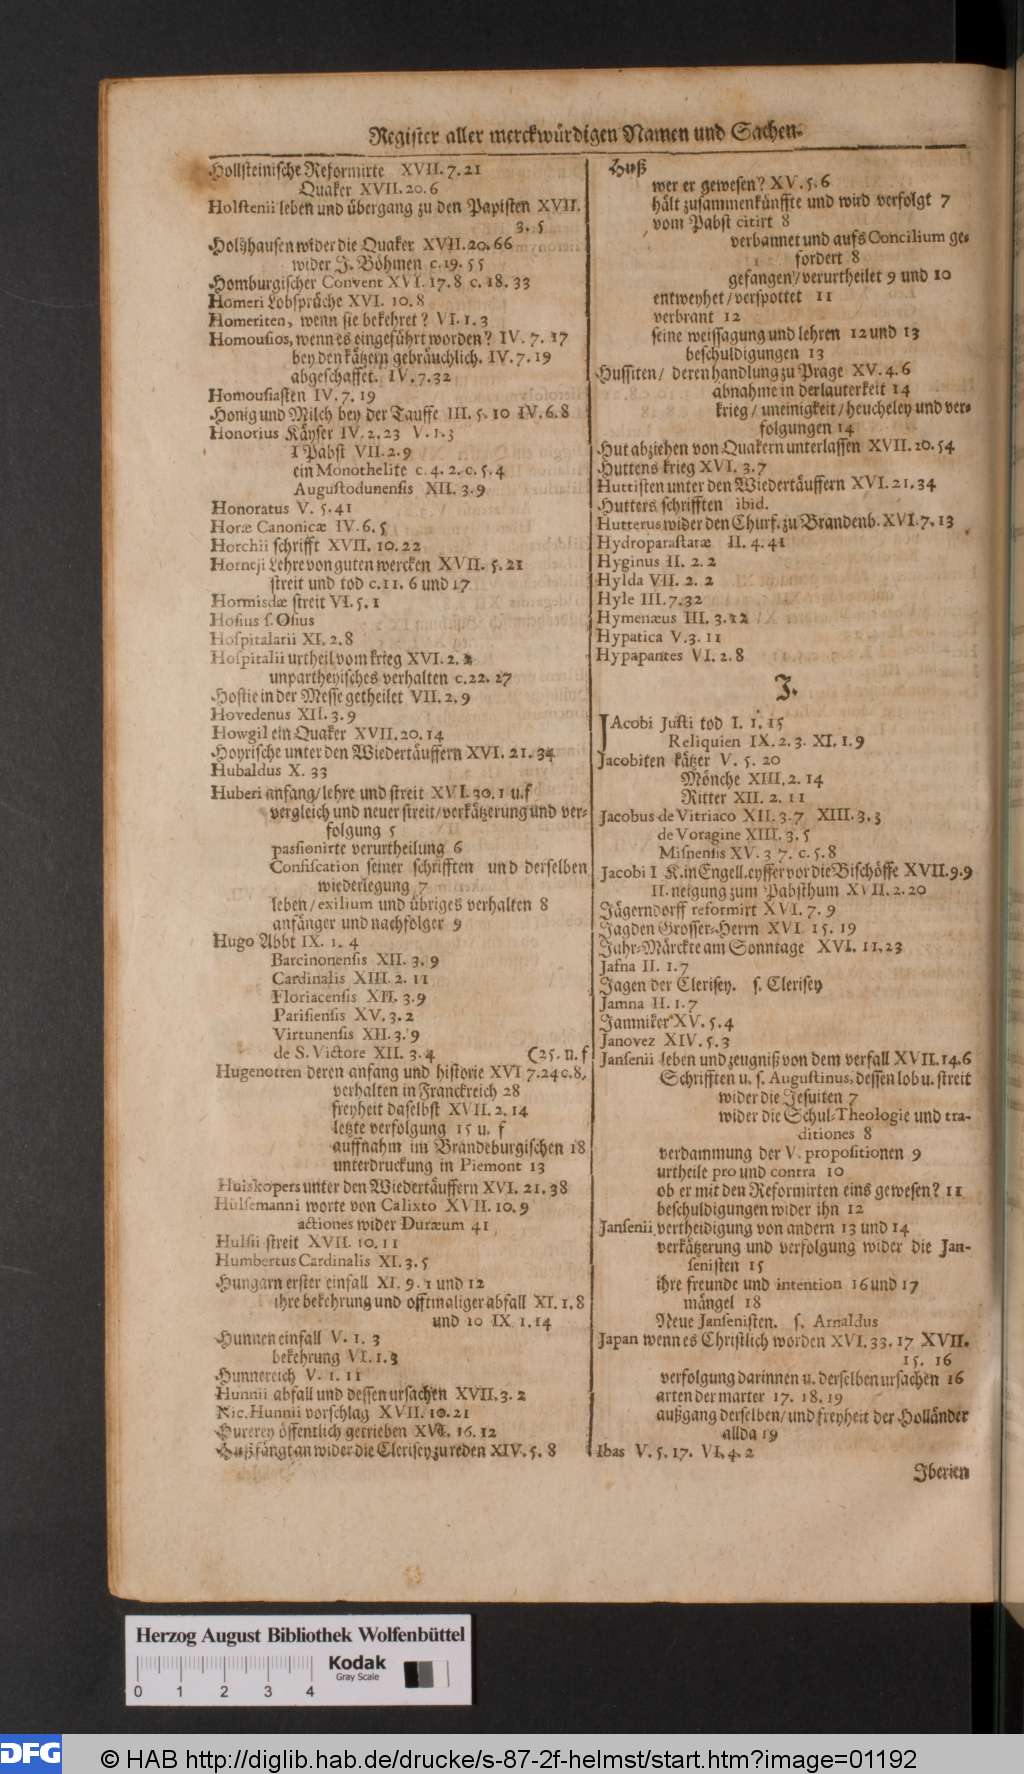 Register aller merckwürdigen Namen und Sachen.
Hollsteinische Reformirte XVII. 7. 21
Quaker XVII. 20. 6
Holstenii leben und übergang zu den Papisten XVII.
3. 5
Holzhausen wider die Quaker XVII. 20. 66
wider J. Böhmen c. 19. 55
Homburgischer Convent XVI. 17. 8 c. 18. 33
Homeri Lobsprüche XVI. 10. 8
Homeriten, wenn sie bekehret? VI. 1. 3
Homousios, wenn es eingeführt worden? IV. 7. 17
bey den kätzern gebräuchlich. IV. 7. 19
abgeschaffet. IV. 7. 32
Homousiasten IV. 7. 19
Honig und Milch bey der Tauffe III. 5. 10 IV. 6. 8
Honorius Käyser IV. 2. 23 V. 1. 3
I Pabst VII. 2. 9
ein Monothelite c. 4. 2. c. 5. 4
Augustodunensis XII. 3. 9
Honoratus V. 5. 41
Horæ Canonicæ IV. 6. 5
Horchii schrifft XVII. 10. 22
Horneji Lehre von guten wercken XVII. 5. 21
streit und tod c. 11. 6 und 17
Hormisdæ streit VI. 5. 1
Hosius s. Osius
Hospitalarii XI. 2. 8
Hospitalii urtheil vom krieg XVI. 2. 4
unpartheyisches verhalten c. 22. 27
Hostie in der Messe getheilet VII. 2. 9
Hovedenus XII. 3. 9
Howgil ein Quaker XVII. 20. 14
Hoyrische unter den Wiedertäuffern XVI. 21. 34
Hubaldus X. 33
Huberi anfang/ lehre und streit XVI. 30. 1 u. f
vergleich und neuer streit/ verkätzerung und ver-
folgung 5
passionirte verurtheilung 6
Confiscation seiner schrifften und derselben
wiederlegung 7
leben/ exilium und übriges verhalten 8
anfänger und nachfolger 9
Hugo Abbt IX. 1. 4
Barcinonensis XII. 3. 9
Cardinalis XIII. 2. 11
Floriacensis XII. 3. 9
Parisiensis XV. 3. 2
Virtunensis XII. 3. 9
de S. Victore XII. 3. 4 (25. u. f
Hugenotten deren anfang und historie XVI 7. 24 c. 8,
verhalten in Franckreich 28
freyheit daselbst XVII. 2. 14
letzte verfolgung 15 u. f
auffnahm im Brandeburgischen 18
unterdruckung in Piemont 13
Huiskopers unter den Wiedertäuffern XVI. 21. 38
Hülsemanni worte von Calixto XVII. 10. 9
actiones wider Duræum 41
Hulsii streit XVII. 10. 11
Humbertus Cardinalis XI. 3. 5
Hungarn erster einfall XI. 9. 1 und 12
ihre bekehrung und offtmaliger abfall XI. 1. 8
und 10 IX. 1. 14
Hunnen einfall V. 1. 3
bekehrung VI. 1. 3
Hunnereich V. 1. 11
Hunnii abfall und dessen ursachen XVII. 3. 2
Nic. Hunnii vorschlag XVII. 10. 21
Hurerey öffentlich getrieben XVI. 16. 12
Huß fängt an wider die Clerisey zu reden XIV. 5. 8
Huß
wer er gewesen? XV. 5. 6
hält zusammenkünffte und wird verfolgt 7
vom Pabst citirt 8
verbannet und aufs Concilium ge-
fordert 8
gefangen/ verurtheilet 9 und 10
entweyhet/ verspottet 11
verbrant 12
seine weissagung und lehren 12 und 13
beschuldigungen 13
Hussiten/ deren handlung zu Prage XV. 4. 6
abnahme in der lauterkeit 14
krieg/ uneinigkeit/ heucheley und ver-
folgungen 14
Hut abziehen von Quakern unterlassen XVII. 20. 54
Huttens krieg XVI. 3. 7
Huttisten unter den Wiedertäuffern XVI. 21. 34
Hutters schrifften ibid.
Hutterus wider den Churf. zu Brandenb. XVI. 7. 13
Hydroparastatæ II. 4. 41
Hyginus II. 2. 2
Hylda VII. 2. 2
Hyle III. 7. 32
Hymenæus III. 3. 12
Hypatica V. 3. 11
Hypapantes VI. 2. 8
J.
JAcobi Justi tod I. 1. 15
Reliquien IX. 2. 3. XI. 1. 9
Jacobiten kätzer V. 5. 20
Mönche XIII. 2. 14
Ritter XII. 2. 11
Jacobus de Vitriaco XII. 3. 7 XIII. 3. 3
de Voragine XIII. 3. 5
Misnensis XV. 3 7. c. 5. 8
Jacobi I K. in Engell. eyffer vor die Bischöffe XVII. 9. 9
II. neigung zum Pabsthum XVII. 2. 20
Jägerndorff reformirt XVI. 7. 9
Jagden Grosser-Herrn XVI 15. 19
Jahr-Märckte am Sonntage XVI. 11. 23
Jafna II. 1. 7
Jagen der Clerisey. s. Clerisey
Jamna II. 1. 7
Jamniker XV. 5. 4
Janovez XIV. 5. 3
Jansenii leben und zeugniß von dem verfall XVII. 14. 6
Schrifften u. s. Augustinus, dessen lob u. streit
wider die Jesuiten 7
wider die Schul-Theologie und tra-
ditiones 8
verdammung der V. propositionen 9
urtheile pro und contra 10
ob er mit den Reformirten eins gewesen? 11
beschuldigungen wider ihn 12
Jansenii vertheidigung von andern 13 und 14
verkätzerung und verfolgung wider die Jan-
senisten 15
ihre freunde und intention 16 und 17
mängel 18
Neue Jansenisten. s. Arnaldus
Japan wenn es Christlich worden XVI. 33. 17 XVII.
15. 16
verfolgung darinnen u. derselben ursachen 16
arten der marter 17. 18. 19
außgang derselben/ und freyheit der Holländer
allda 19
Ibas V. 5. 17. VI. 4. 2
Iberien
Herzog August Bibliothek Wolfenbüttel
Kodak
Gray Scale
0 1 2 3 4
DFG
© HAB http://diglib.hab.de/drucke/s-87-2f-helmst/start.htm?image=01192